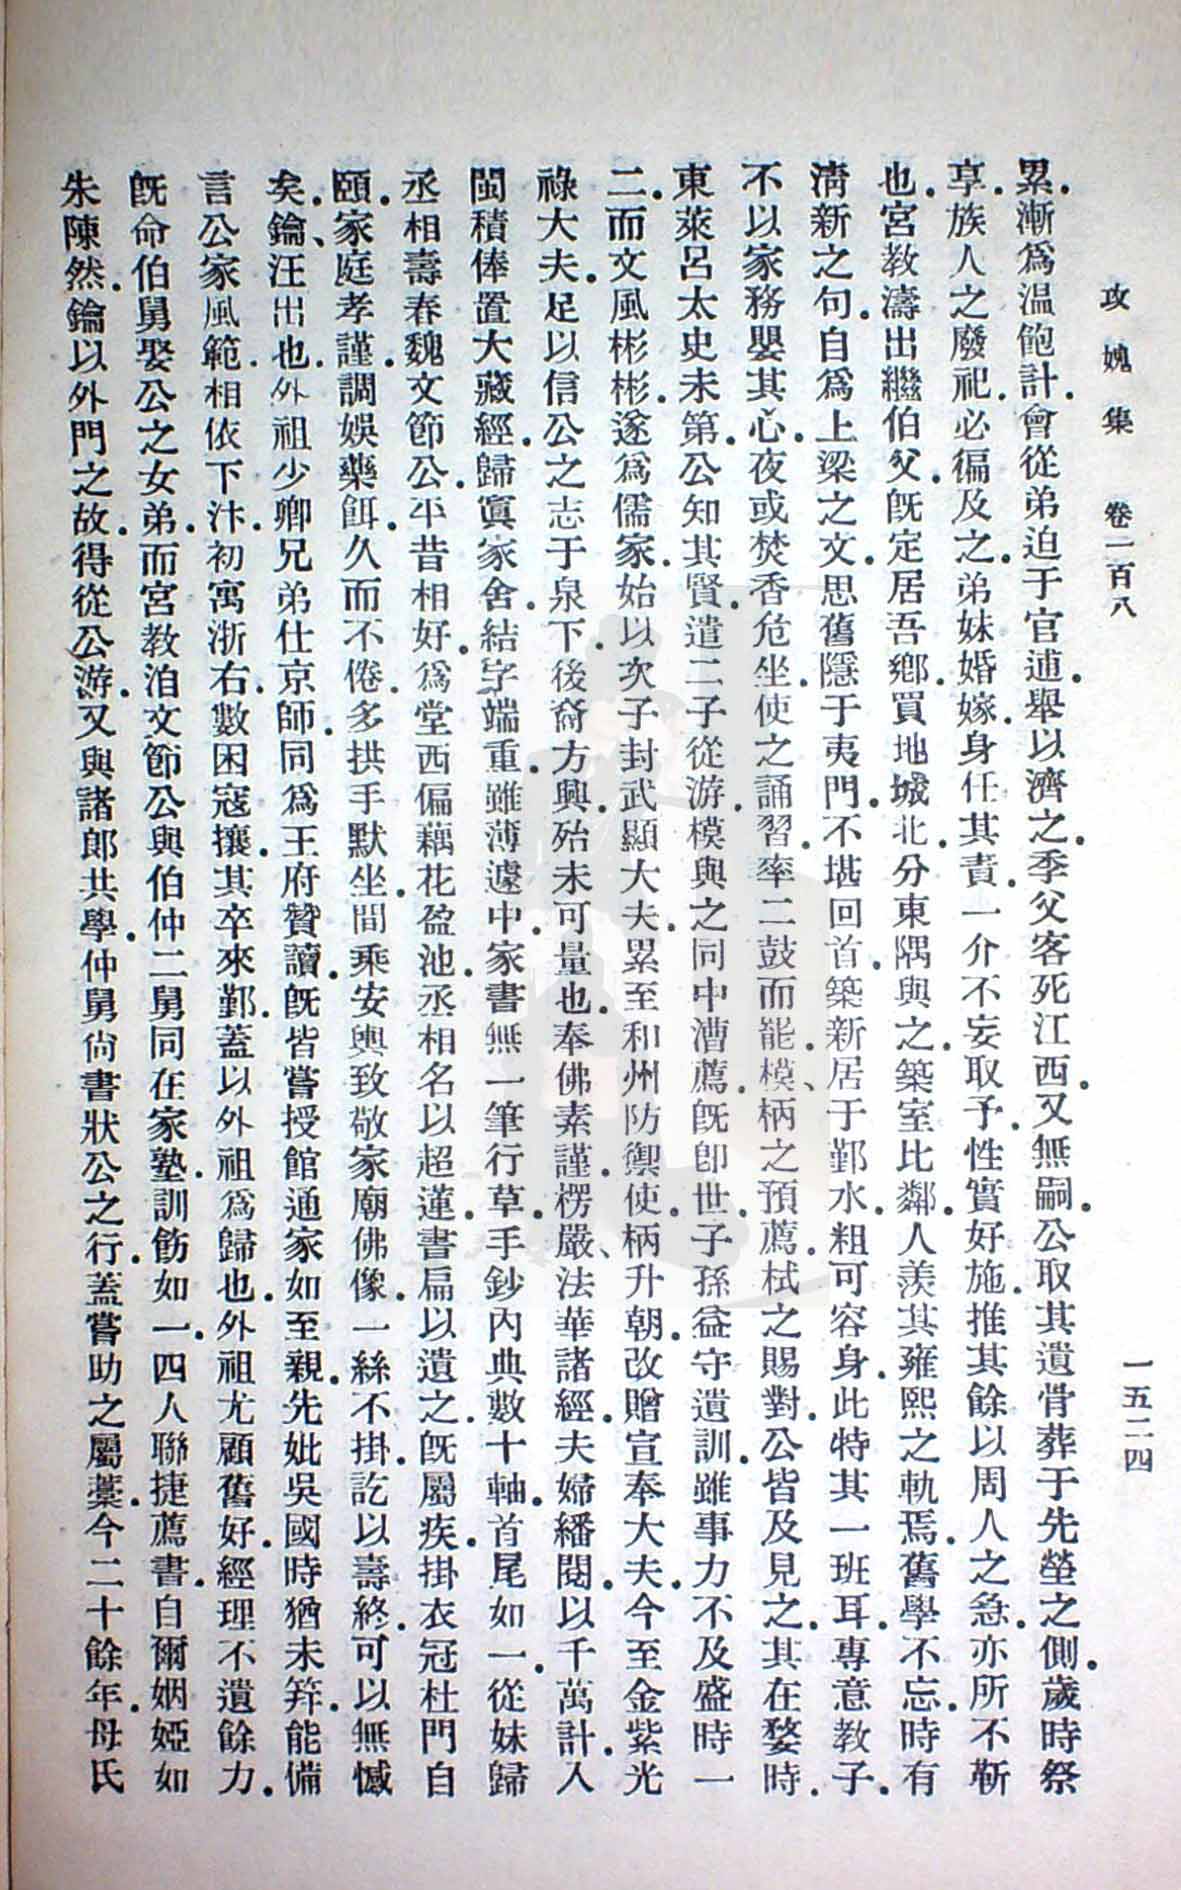 攻媿集 卷一百八 一五二四
累．漸爲温飽計．會從弟迫于官逋．舉以濟之．季父客死江西．又無嗣．公取其遺骨葬于先塋之側．歲時祭
享．族人之廢祀．必徧及之．弟妹婚嫁．身任其責．一介不妄取予．性實好施．推其餘以周人之急．亦所不靳
也．宮教濤出繼伯父．既定居吾鄉．買地城北．分東隅與之．築室比鄰．人羨其雍熙之軌焉．舊學不忘．時有
清新之句．自爲上梁之文．思舊隱于夷門．不堪回首．築新居于鄞水．粗可容身．此特其一班耳．專意教子．
不以家務嬰其心．夜或焚香危坐．使之誦習．率二鼓而罷．模、柄之預薦．栻之賜對．公皆及見之．其在婺時．
東萊呂太史未第．公知其賢．遣二子從游．模與之同中漕薦．既卽世．子孫益守遺訓．雖事力不及盛時一
二．而文風彬彬．遂爲儒家．始以次子封武顯大夫．累至和州防禦使．柄升朝．改贈宣奉大夫．今至金紫光
祿大夫．足以信公之志于泉下．後裔方興．殆未可量也．奉佛素謹．楞嚴、法華諸經．夫婦繙閱．以千萬計．入
閩積俸置大藏經．歸寘家舍．結字端重．雖薄遽中．家書無一筆行草．手鈔內典數十軸．首尾如一．從妹歸
丞相壽春魏文節公．平昔相好．爲堂西偏．藕花盈池．丞相名以超蓮．書扁以遺之．既屬疾．掛衣冠杜門自
頤．家庭孝謹．調娛藥餌．久而不倦．多拱手默坐．間乘安輿致敬家廟佛像．一絲不掛．訖以壽終．可以無憾
矣．鑰、汪出也．外祖少卿兄弟仕京師．同爲王府贊讀．既皆嘗授館通家如至親．先妣吳國時猶未筓．能備
言公家風範．相依下汴．初寓浙右．數困寇攘．其卒來鄞．蓋以外祖爲歸也．外祖尤顧舊好．經理不遺餘力．
既命伯舅娶公之女弟．而宮教洎文節公與伯仲二舅同在家塾．訓飭如一．四人聯捷薦書．自爾姻婭如
朱陳然．鑰以外門之故．得從公游．又與諸郎共學．仲舅尚書狀公之行．蓋嘗助之屬藁．今二十餘年．母氏